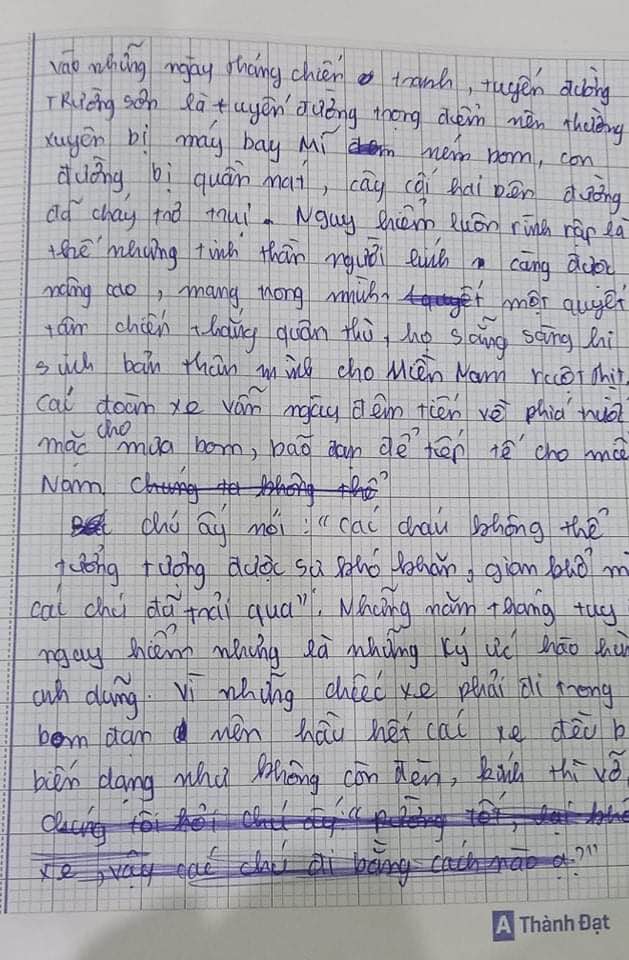 vào những ngày tháng chiến tranh, tuyến đường
TRường sơn là tuyến đường trọng điểm nên thường
xuyên bị máy bay Mĩ ném bom, con
đường bị quần nát, cây cối hai bên đường
đã cháy trở trụi. Nguy hiểm luôn rình rập là
thế nhưng tinh thần người lính càng được
nâng cao, mang trong mình một quyết
tâm chiến thắng quân thù, họ sẵng sàng hi
sinh bản thân mình cho Miền Nam ruột thịt,
các đoàn xe vẫn ngày đêm tiến về phía trước
mặc cho mưa bom, bão đạn để tiếp tế cho miề
Nam, chúng ta không thể
chú ấy nói: "các cháu không thể
tưởng tượng được sự khó khăn, gian khổ m
các chú đã trải qua". Những năm tháng tuy
nguy hiểm nhưng là những ký ức hào hù
anh dũng. Vì những chiếc xe phải đi trong
bom đạn nên hầu hết các xe đều b
biến dạng như không còn đèn, kính thì vỡ
chúng tôi hỏi chú ấy "
xe, vậy các chú đi bằng cách nào ạ?"
A Thành Đạt